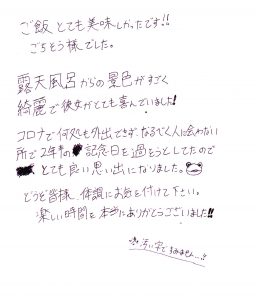 ご飯とても美味しかったです!!
ごちそう様でした。
露天風呂からの景色がすごく
綺麗で彼女がとても喜んでいました!
コロナで何処も外出できず、なるべく人に会わない
所で2年半の記念日を過そうとしてたので
とても良い思い出になりました。
どうぞ皆様、体調にお気を付けて下さい。
楽しい時間を本当にありがとうございました!!
汚い字ですみません…!!